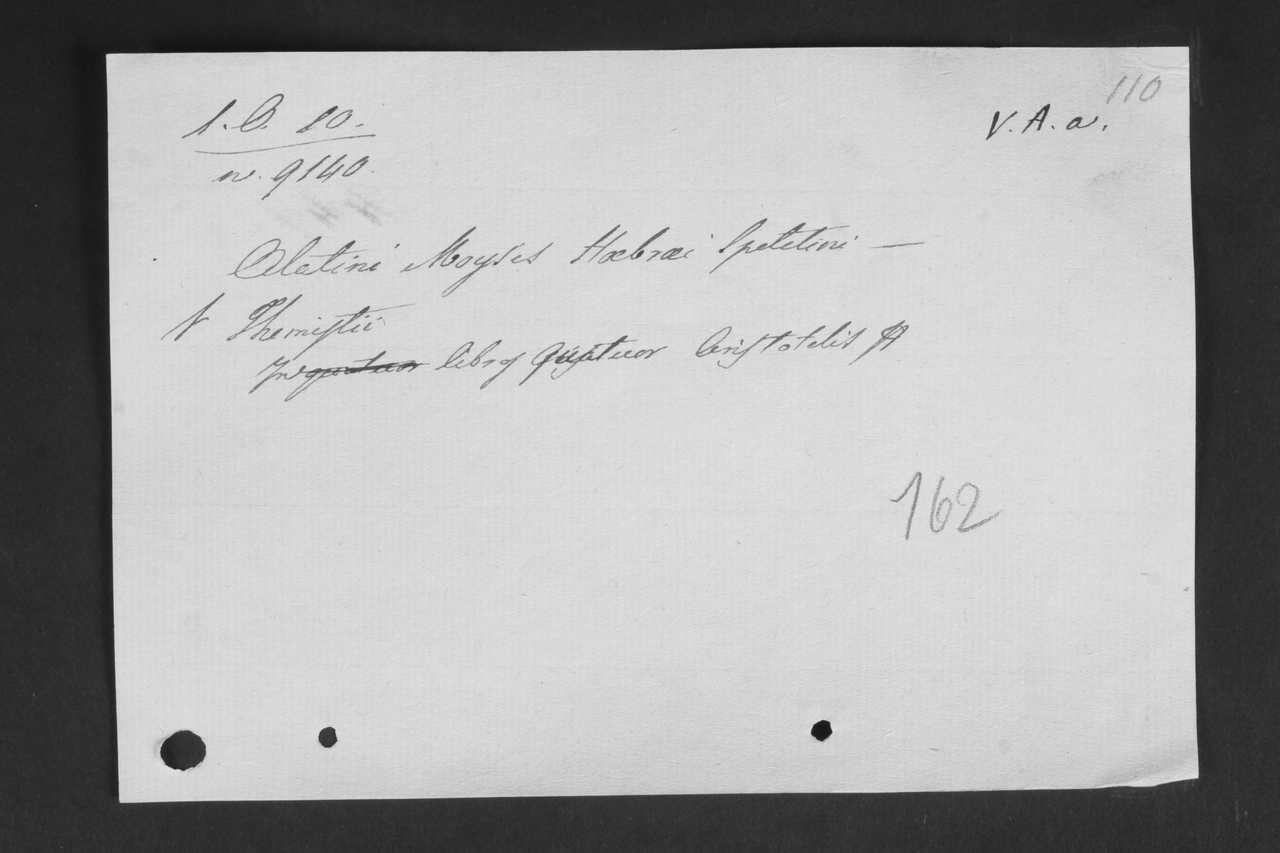 110
1. O. 10.
V. A. a.
n. 9140.
Alatini Moyses Hæbræi Spoletini —
V Themistii
In quatuor libros quatuor Aristotelis
162